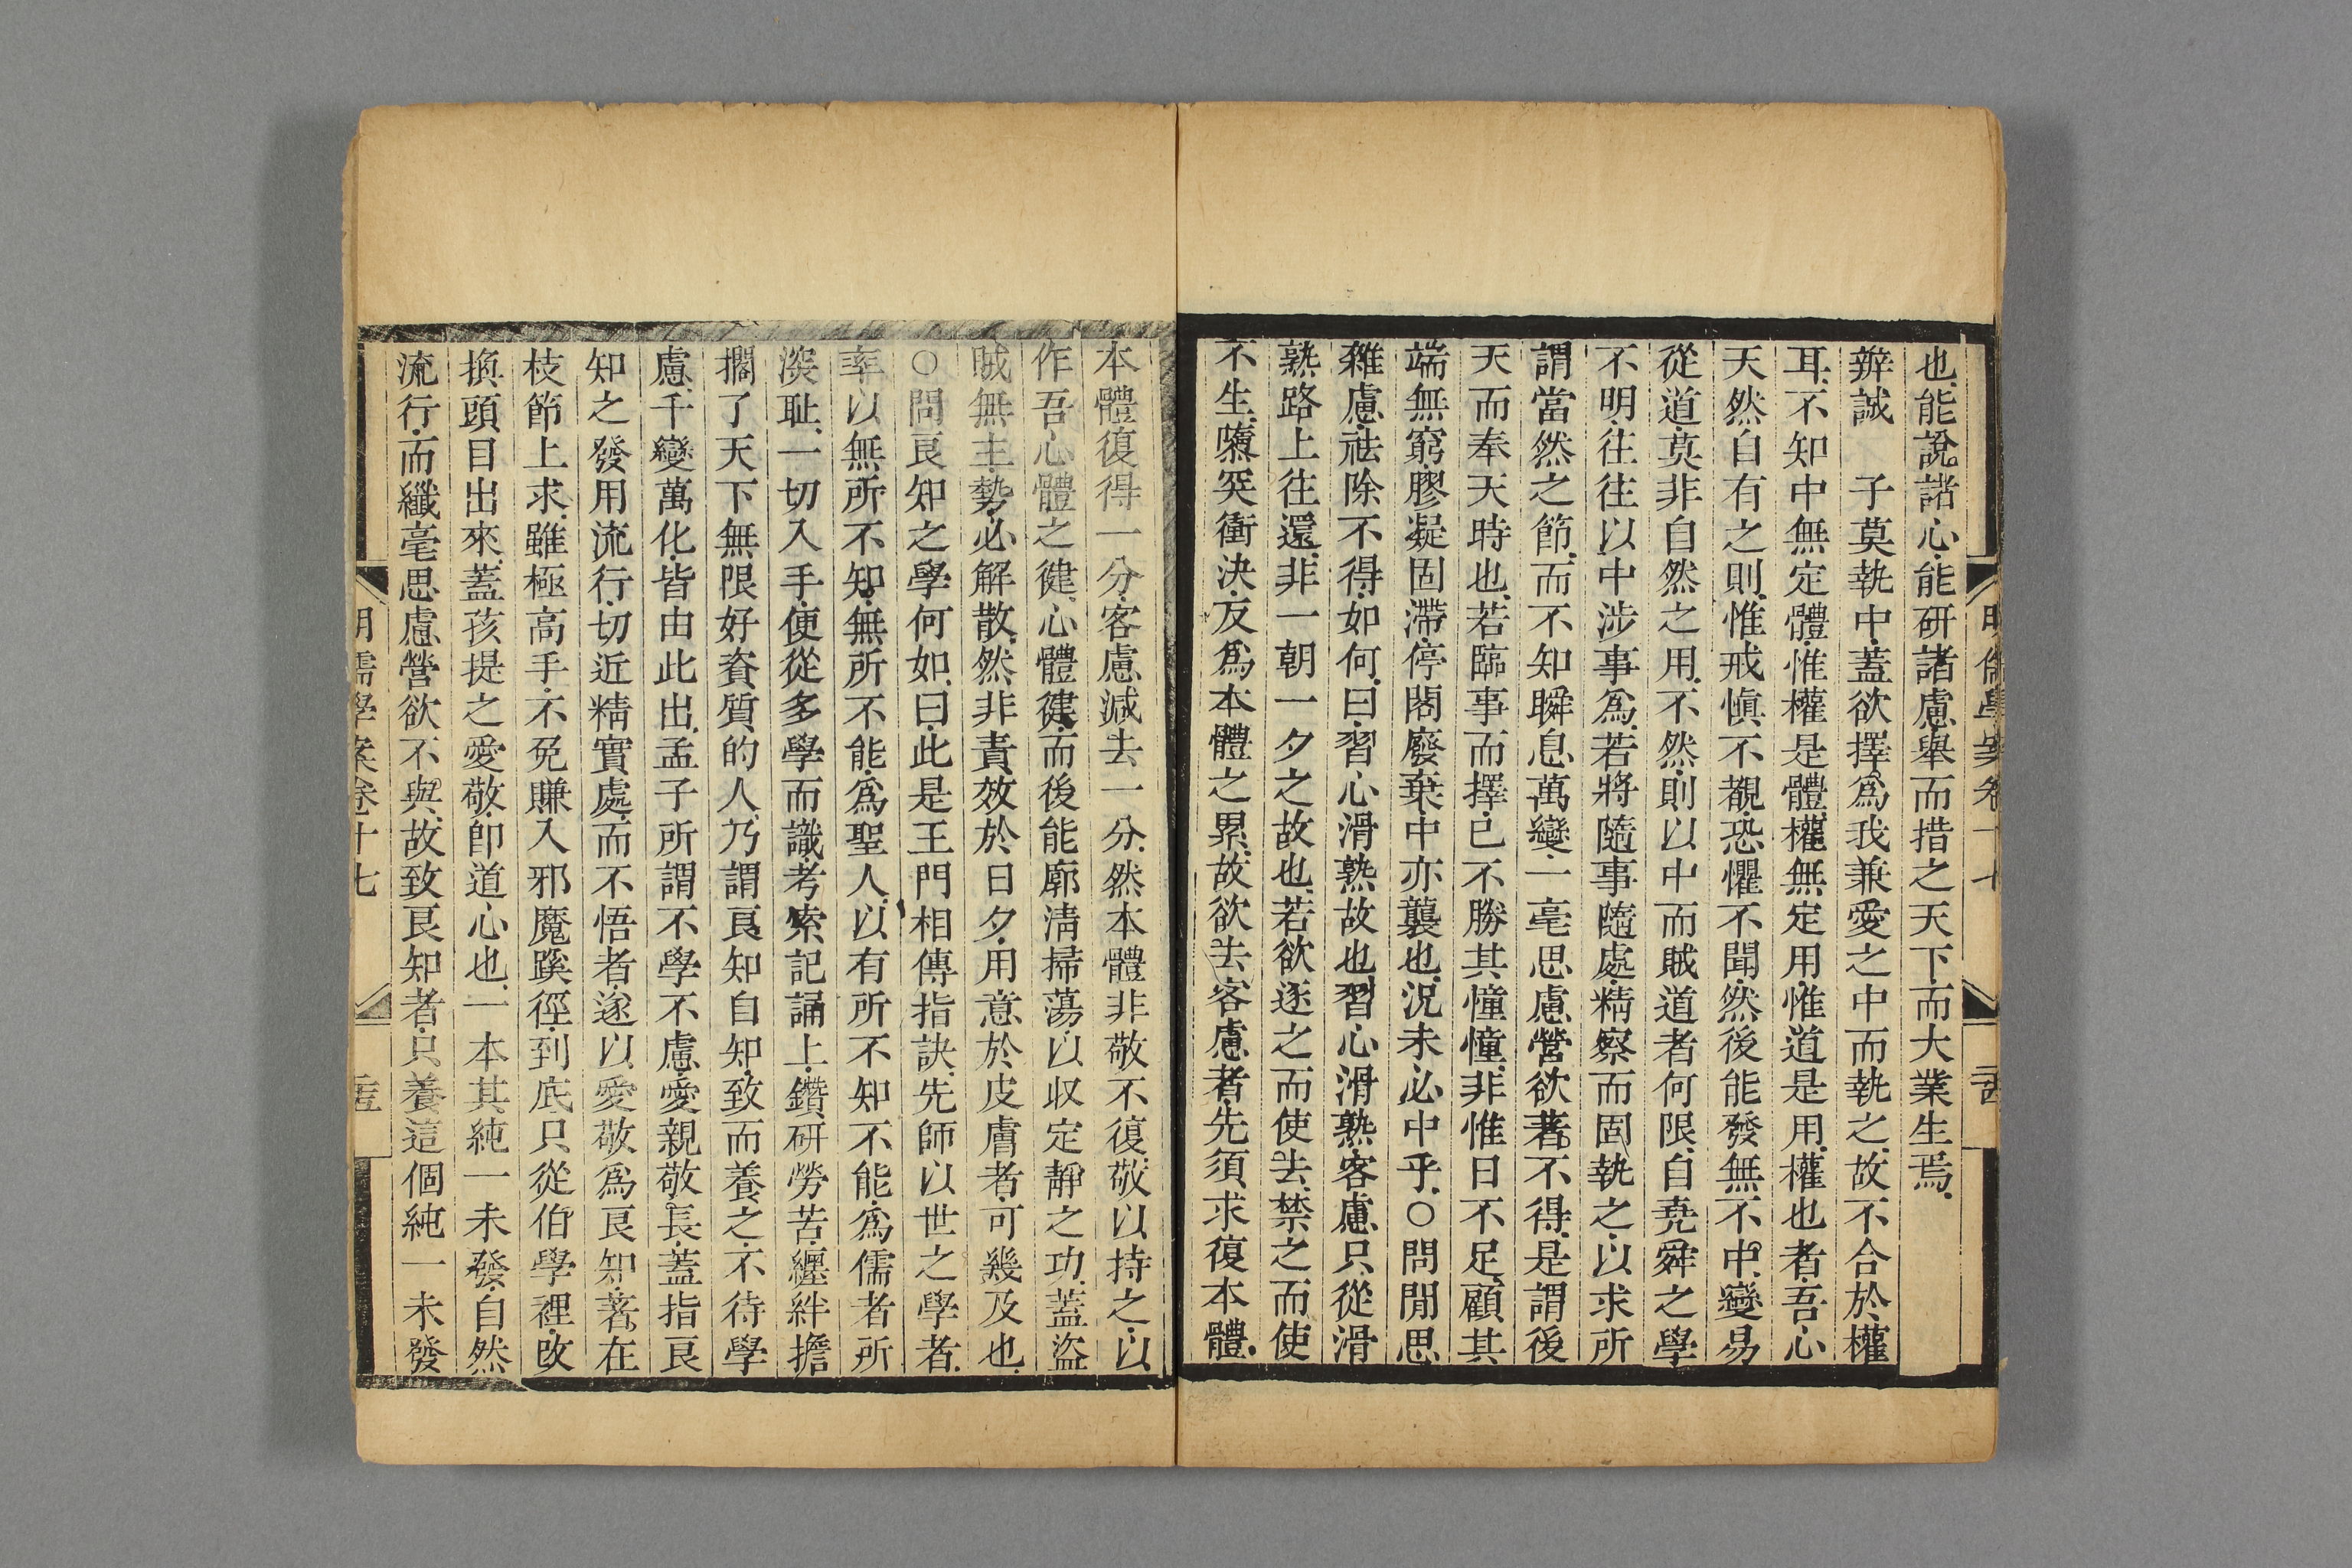 也能說諸心能研諸慮舉而措之天下而大業生焉
辨誠　子莫執中蓋欲擇爲我兼愛之中而執之故不合於權
耳不知中無定體惟權是體權無定用惟道是用權也者吾心
天然自有之則惟戒愼不覩恐懼不聞然後能發無不中變易
從道莫非自然之用不然則以中而賊道者何限自堯舜之學
不明往往以中涉事爲若將隨事隨處精察而固執之以求所
謂當然之節而不知瞬息萬變一毫思慮營欲著不得是謂後
天而奉天時也若臨事而擇已不勝其憧憧非惟日不足顧其
端無窮膠凝固滯停閣廢棄中亦襲也況未必中乎○問閒思
雜慮祛除不得如何曰習心滑熟故也習心滑熟客慮只從滑
熟路上往還非一朝一夕之故也若欲逐之而使去禁之而使
不生隳突衝決反爲本體之累故欲去客慮者先須求復本體
本體復得一分客慮減去一分然本體非敬不復敬以持之以
作吾心體之健心體健而後能廓淸掃蕩以收定靜之功蓋盜
賊無主勢必解散然非責效於日夕用意於皮膚者可幾及也
○問良知之學何如曰此是王門相傳指訣先師以世之學者
率以無所不知無所不能爲聖人以有所不知不能爲儒者所
深恥一切入手便從多學而識考索記誦上鑽研勞苦纏絆擔
擱了天下無限好資質的人乃謂良知自知致而養之不待學
慮千變萬化皆由此出孟子所謂不學不慮愛親敬長蓋指良
知之發用流行切近精實處而不悟者遂以愛敬爲良知著在
枝節上求雖極高手不免賺入邪魔蹊徑到底只從伯學裡改
換頭目出來蓋孩提之愛敬卽道心也一本其純一未發自然
流行而纖毫思慮營欲不與故致良知者只養這個純一未發
明儒學案卷十七